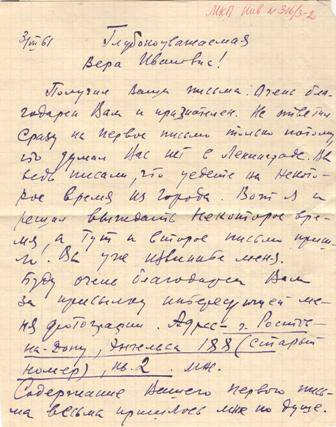 МКП Нив № 316/5-2
3/VII 61 Глубокоуважаемая
Вера Ивановна!
Получил Ваши письма. Очень бла-
годарен Вам и признателен. Не ответил
сразу на первое письмо только потому,
что думал Вас нет в Ленинграде. Вы
ведь писали, что уедете на некото-
рое время из города. Вот я и
решил выждать некоторое вре-
мя, а тут и второе письмо приш-
ло. Вы уже извините меня.
Буду очень благодарен Вам
за присылку интересующей ме-
ня фотографии. Адрес г. Росто-
на-Дону, Энгельса 188 (старый
номер), кв. 2. мне.
Содержание Вашего первого пись-
ма весьма пришлось мне по душе.